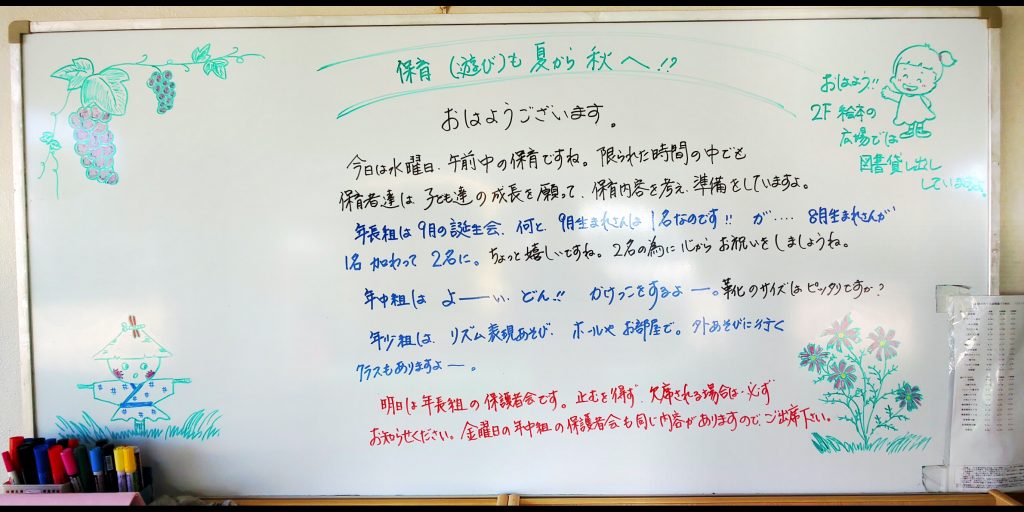 保育(遊び)も夏から秋へ!?
おはよう!!
2F 絵本の
広場では
図書貸し出し
しています。
おはようございます。
今日は水曜日、午前中の保育ですね。限られた時間の中でも
保育者達は子ども達の成長を願って、保育内容を考え、準備をしていますよ。
年長組は9月の誕生会、何と、9月生まれさんは1名なのです!! が‥‥ 8月生まれさんが
1名加わって2名に。ちょっと嬉しいですね。2名の為に心からお祝いをしましょうね。
年中組は よーーい、どん!! かけっこをするよー。靴のサイズはピッタリですか?
年少組は、リズム表現あそび、ホールやお部屋で。外あそびに行く
クラスもありますよー。
明日は年長組の保護者会です。止むを得ず、欠席される場合は、必ず
お知らせください。金曜日の年中組の保護者会も同じ内容がありますので、ご出席下さい。